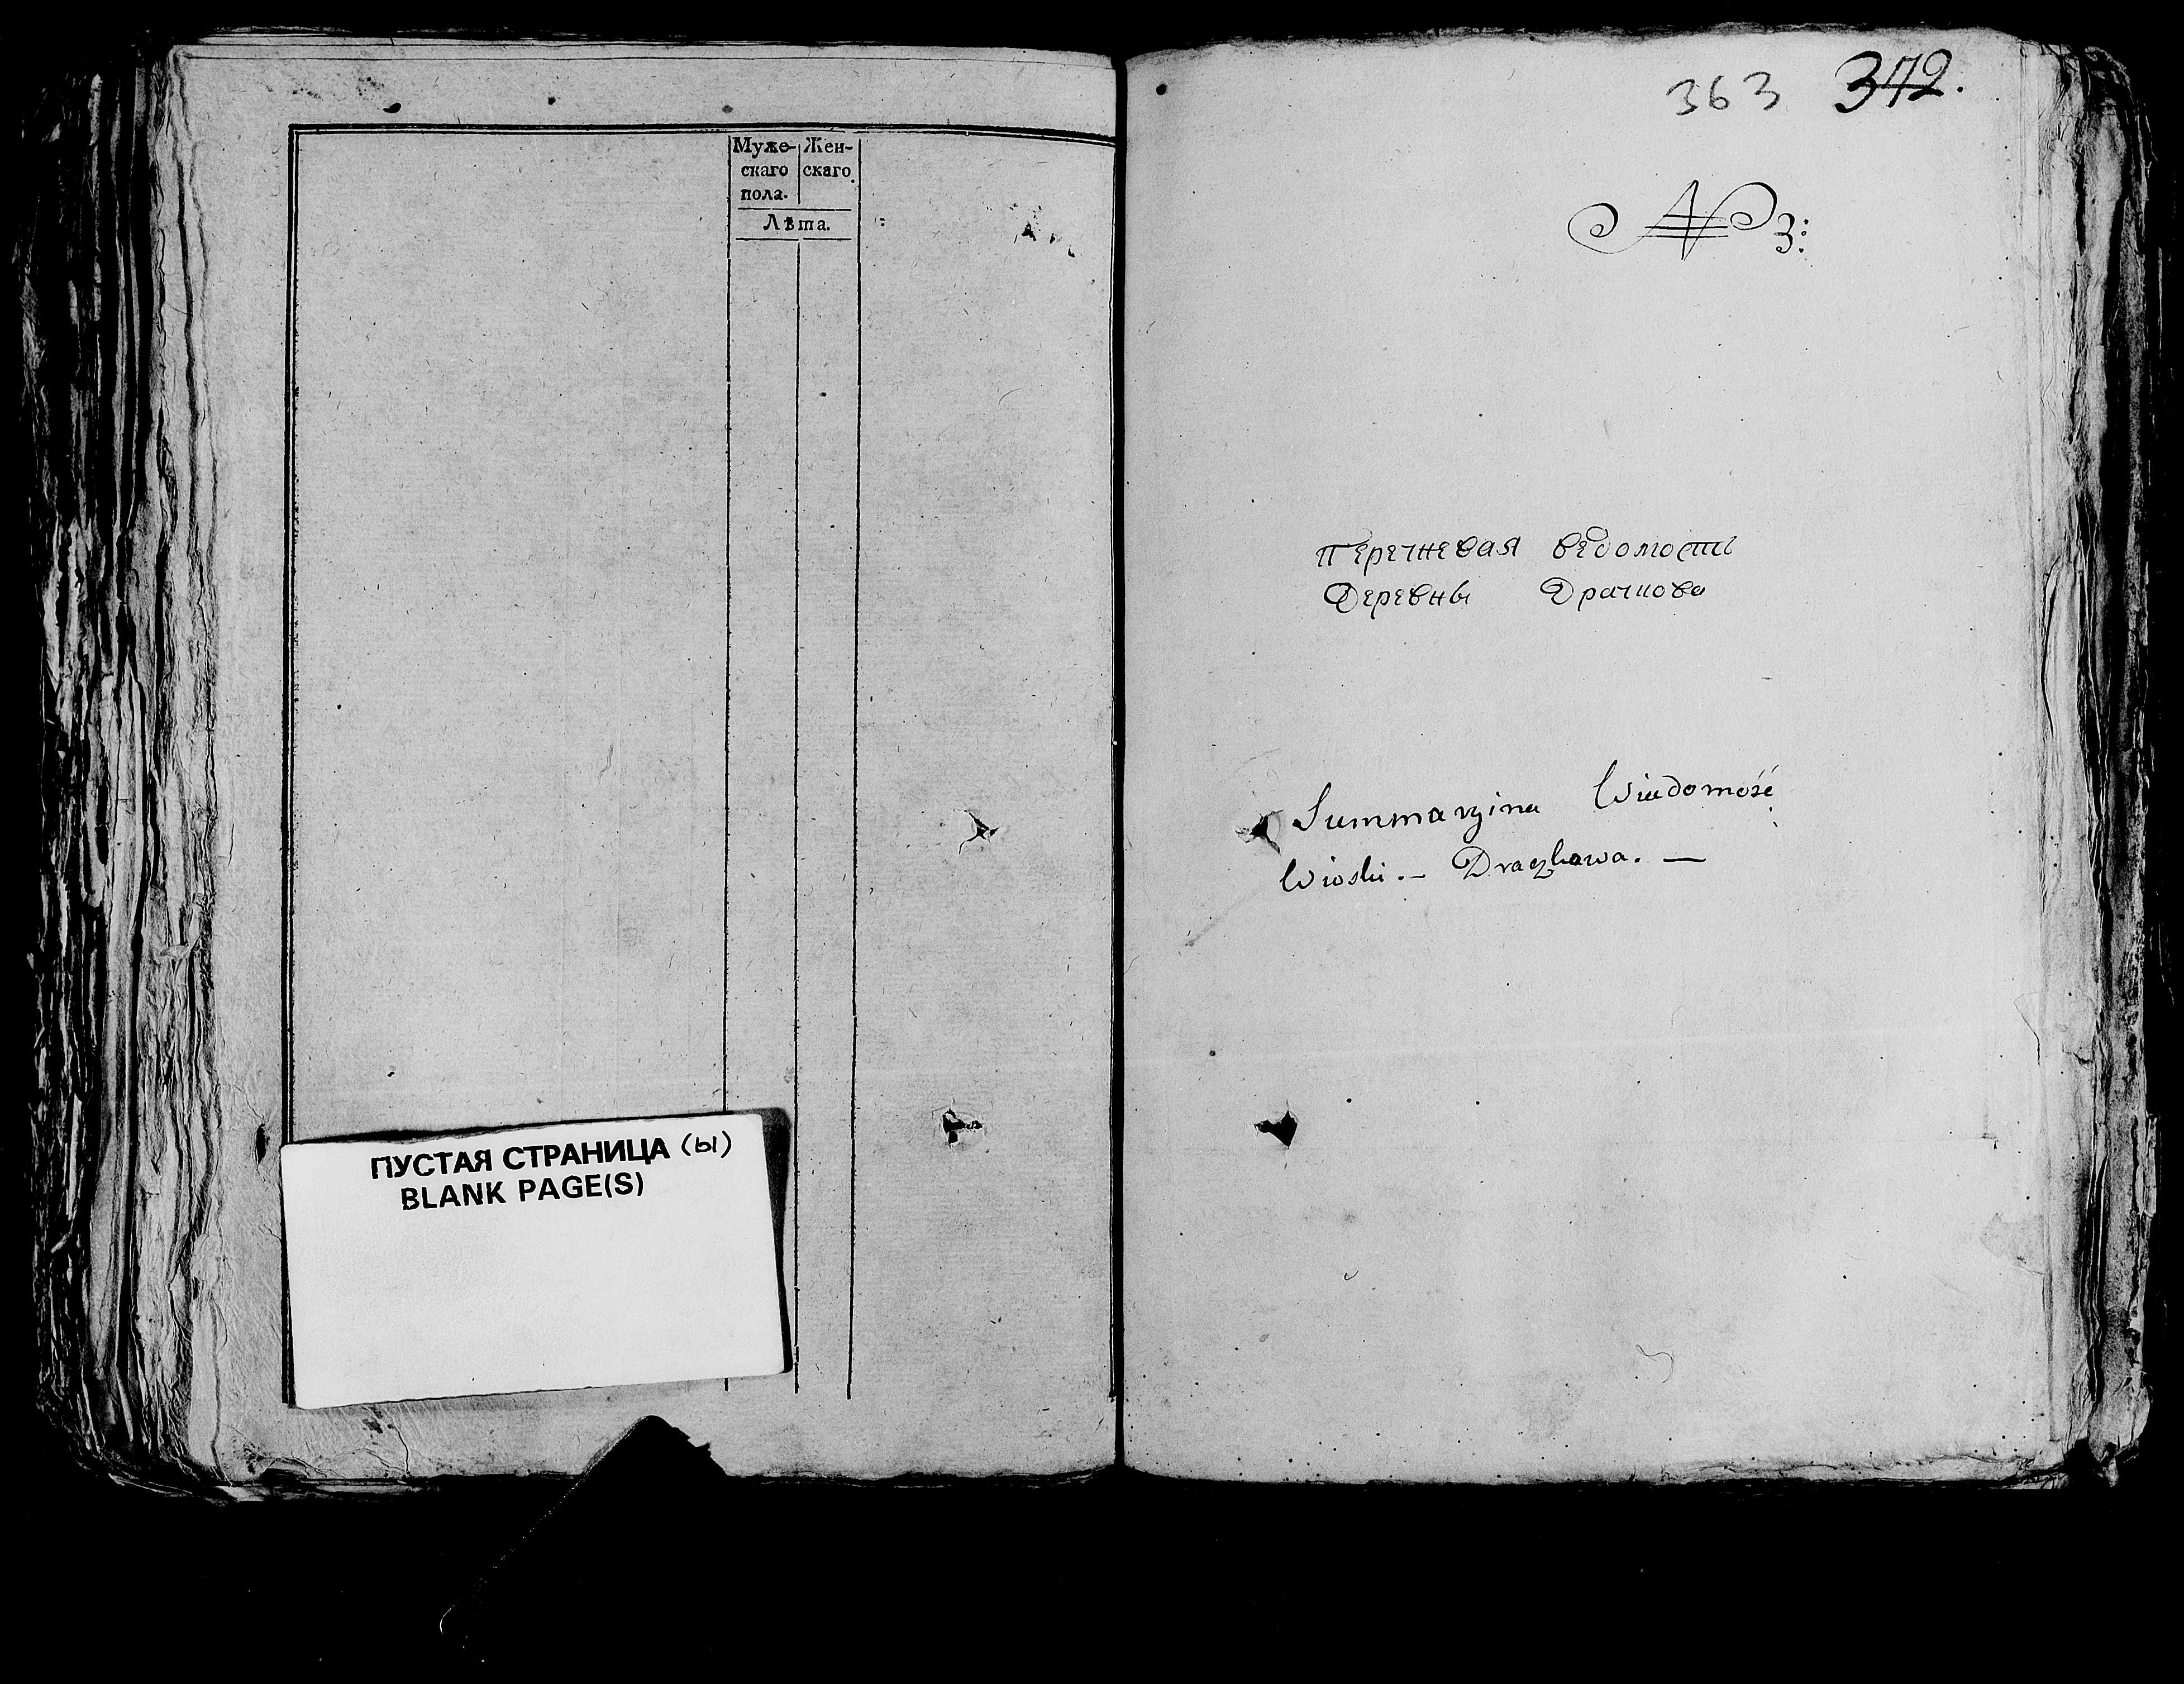 Муже- Жен-
скаго скаго
пола.
Лѣта.
ПУСТАЯ СТРАНИЦА (ы)
BLANK PAGE(S)
363 372.
N 3:
перечневая ведомость
Деревны Драчкова
Summaryina Wiadomość
Wioski. — Draczkowa. —